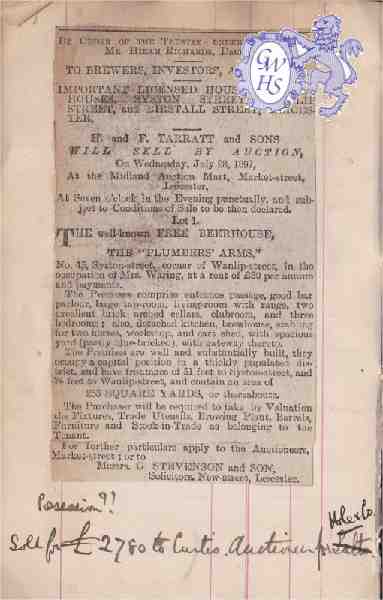 BY ORDER OF THE TRUSTEE UNDER
MR. HIRAM RICHARDS,
GWHS
TO BREWERS, INVESTORS,
IMPORTANT LICENSED
HOUSES, SYSTON STREET,
STREET, and BIRSTALL STREET,
TER.
H. and F. TARRATT and SONS
WILL SELL BY AUCTION,
On Wednesday, July 28, 1897,
At the Midland Auction Mart, Market-street,
Leicester,
At Seven o'clock in the Evening punctually, and sub-
ject to Conditions of Sale to be then declared.
Lot 1.
THE well-known FREE BEERHOUSE,
THE "PLUMBERS' ARMS,"
No. 45, Syston-street, corner of Wanlip-street, in the
occupation of Mrs. Waring, at a rent of £80 per annum
and payments.
The Premises comprise entrance passage, good bar
parlour, large tap-room, living-room with range, two
excellent brick arched cellars, clubroom, and three
bedrooms; also, detached kitchen, brewhouse, stabling
for two horses, workshop, and cart shed, with spacious
yard (partly blue-bricked), with gateway thereto.
The Premises are well and substantially built, they
occupy a capital position in a thickly populated dis-
trict, and have frontages of 51 feet to Syston-street, and
feet to Wanlip-street, and contain an area of
SQUARE YARDS, or thereabouts.
The Purchaser will be required to take by Valuation
the Fixtures, Trade Utensils, Brewing Plant, Barrels,
Furniture and Stock-in-Trade as belonging to the
Tenant.
For further particulars apply to the Auctioneers,
Market-street; or to
Messrs. G. STEVENSON and SON,
Solicitors, New-street, Leicester.
Possession??
Sold for £2780 to Curtis Auctioneer for
Holes Co.